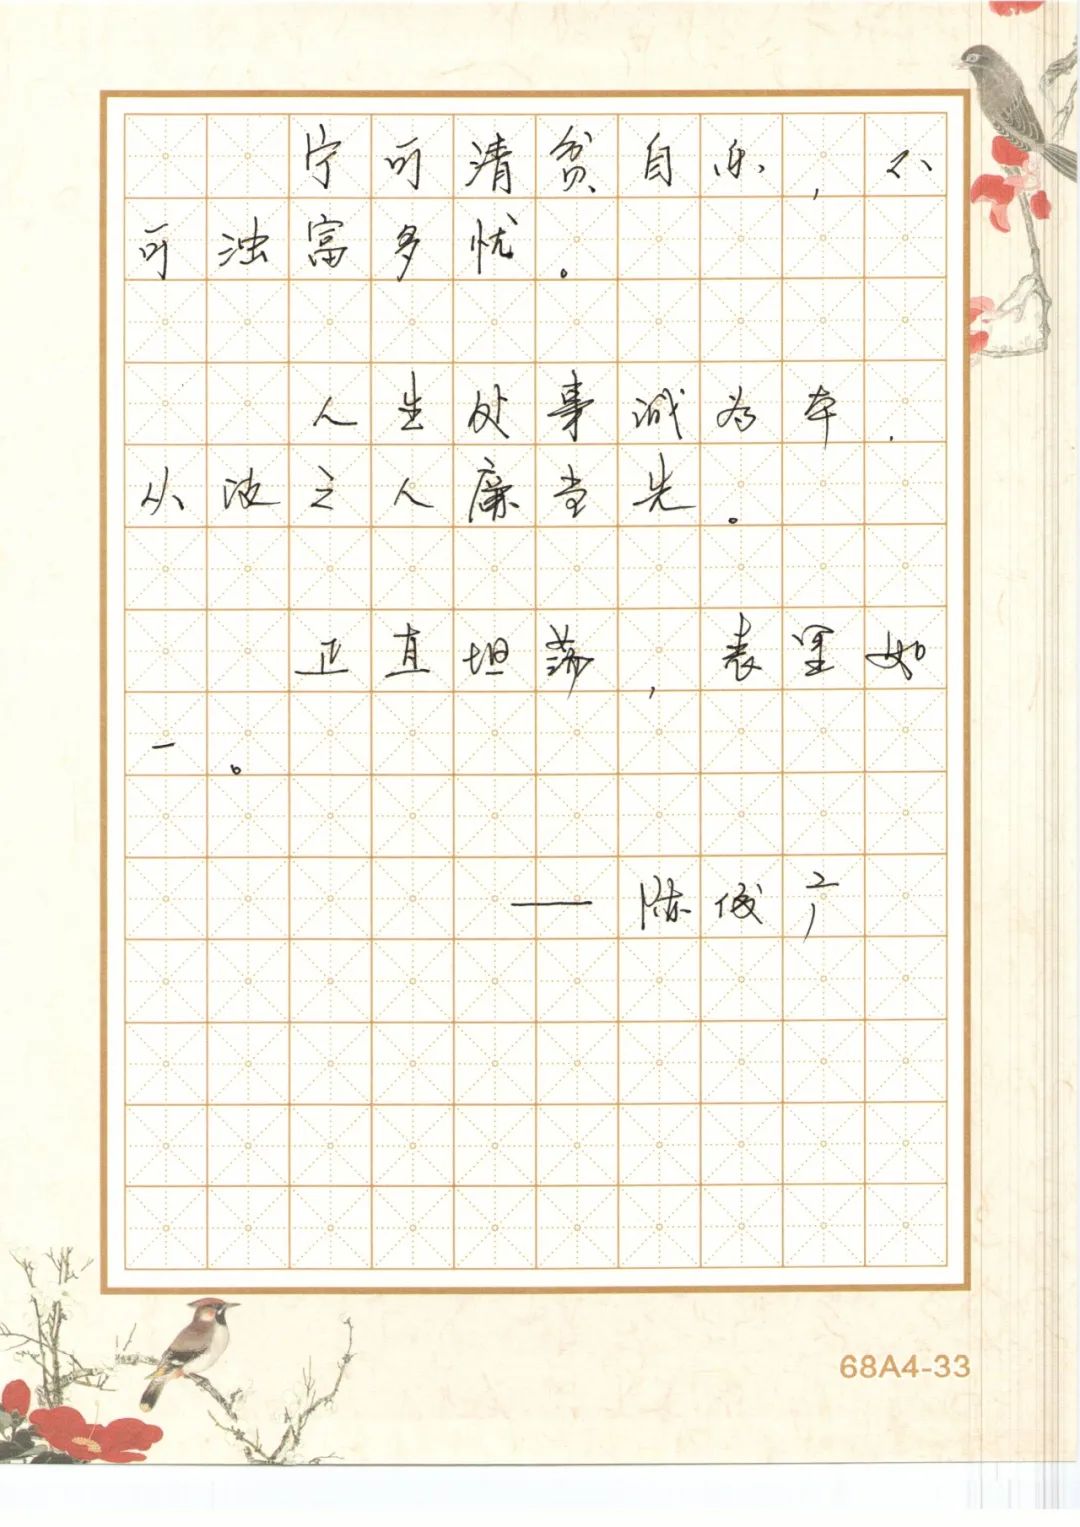 宁可清贫自乐，不
可浊富多忧。
人生处事诚为本，
从政之人廉当先。
正直坦荡，表里如
一。
——陈俊广
68A4-33